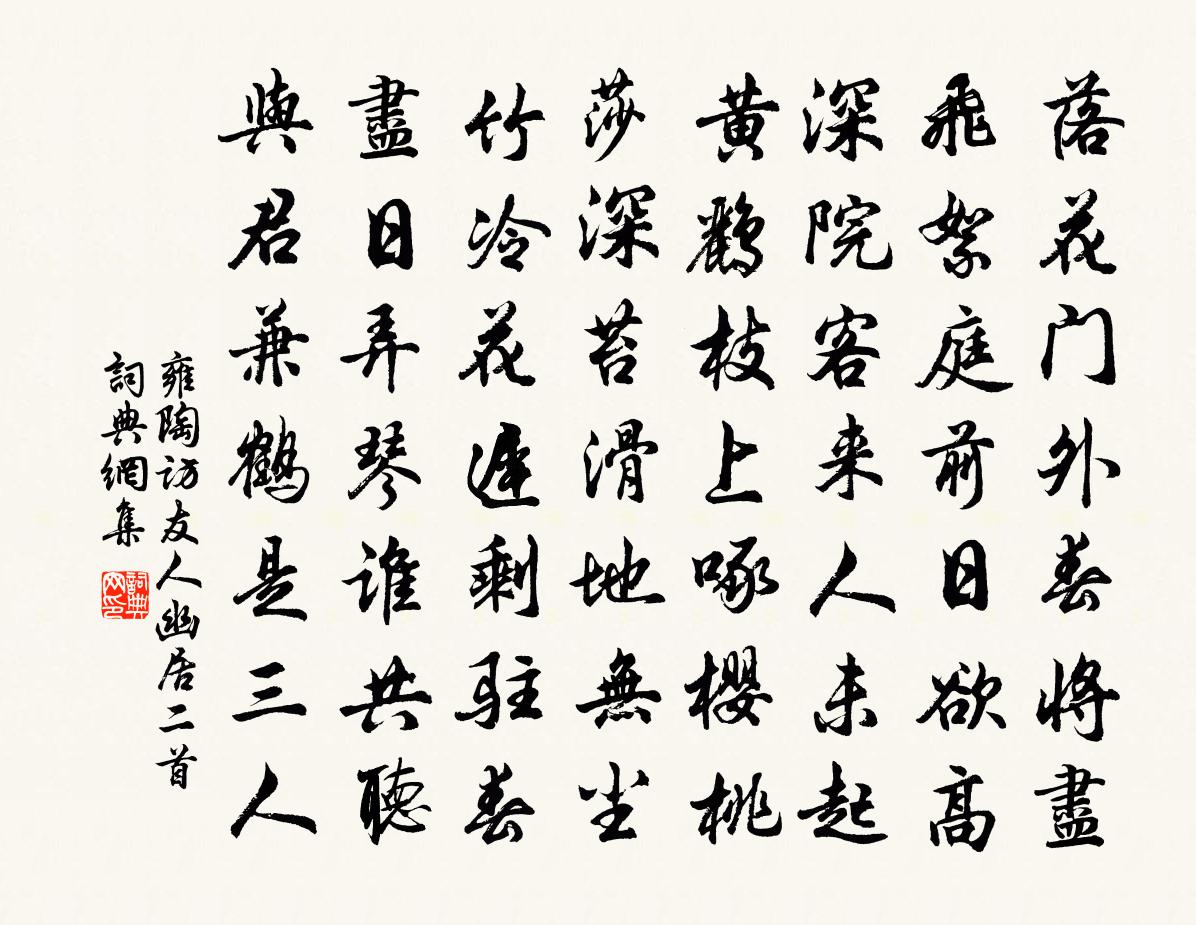 落花门外春將盡
飛絮庭前日欲高
深院客来人未起
黄鸝枝上啄櫻桃
莎深苔滑地無尘
竹冷花遲剩駐春
盡日弄琴谁共聽
與君兼鶴是三人
雍陶访友人幽居二首
詞典網集
詞典网印